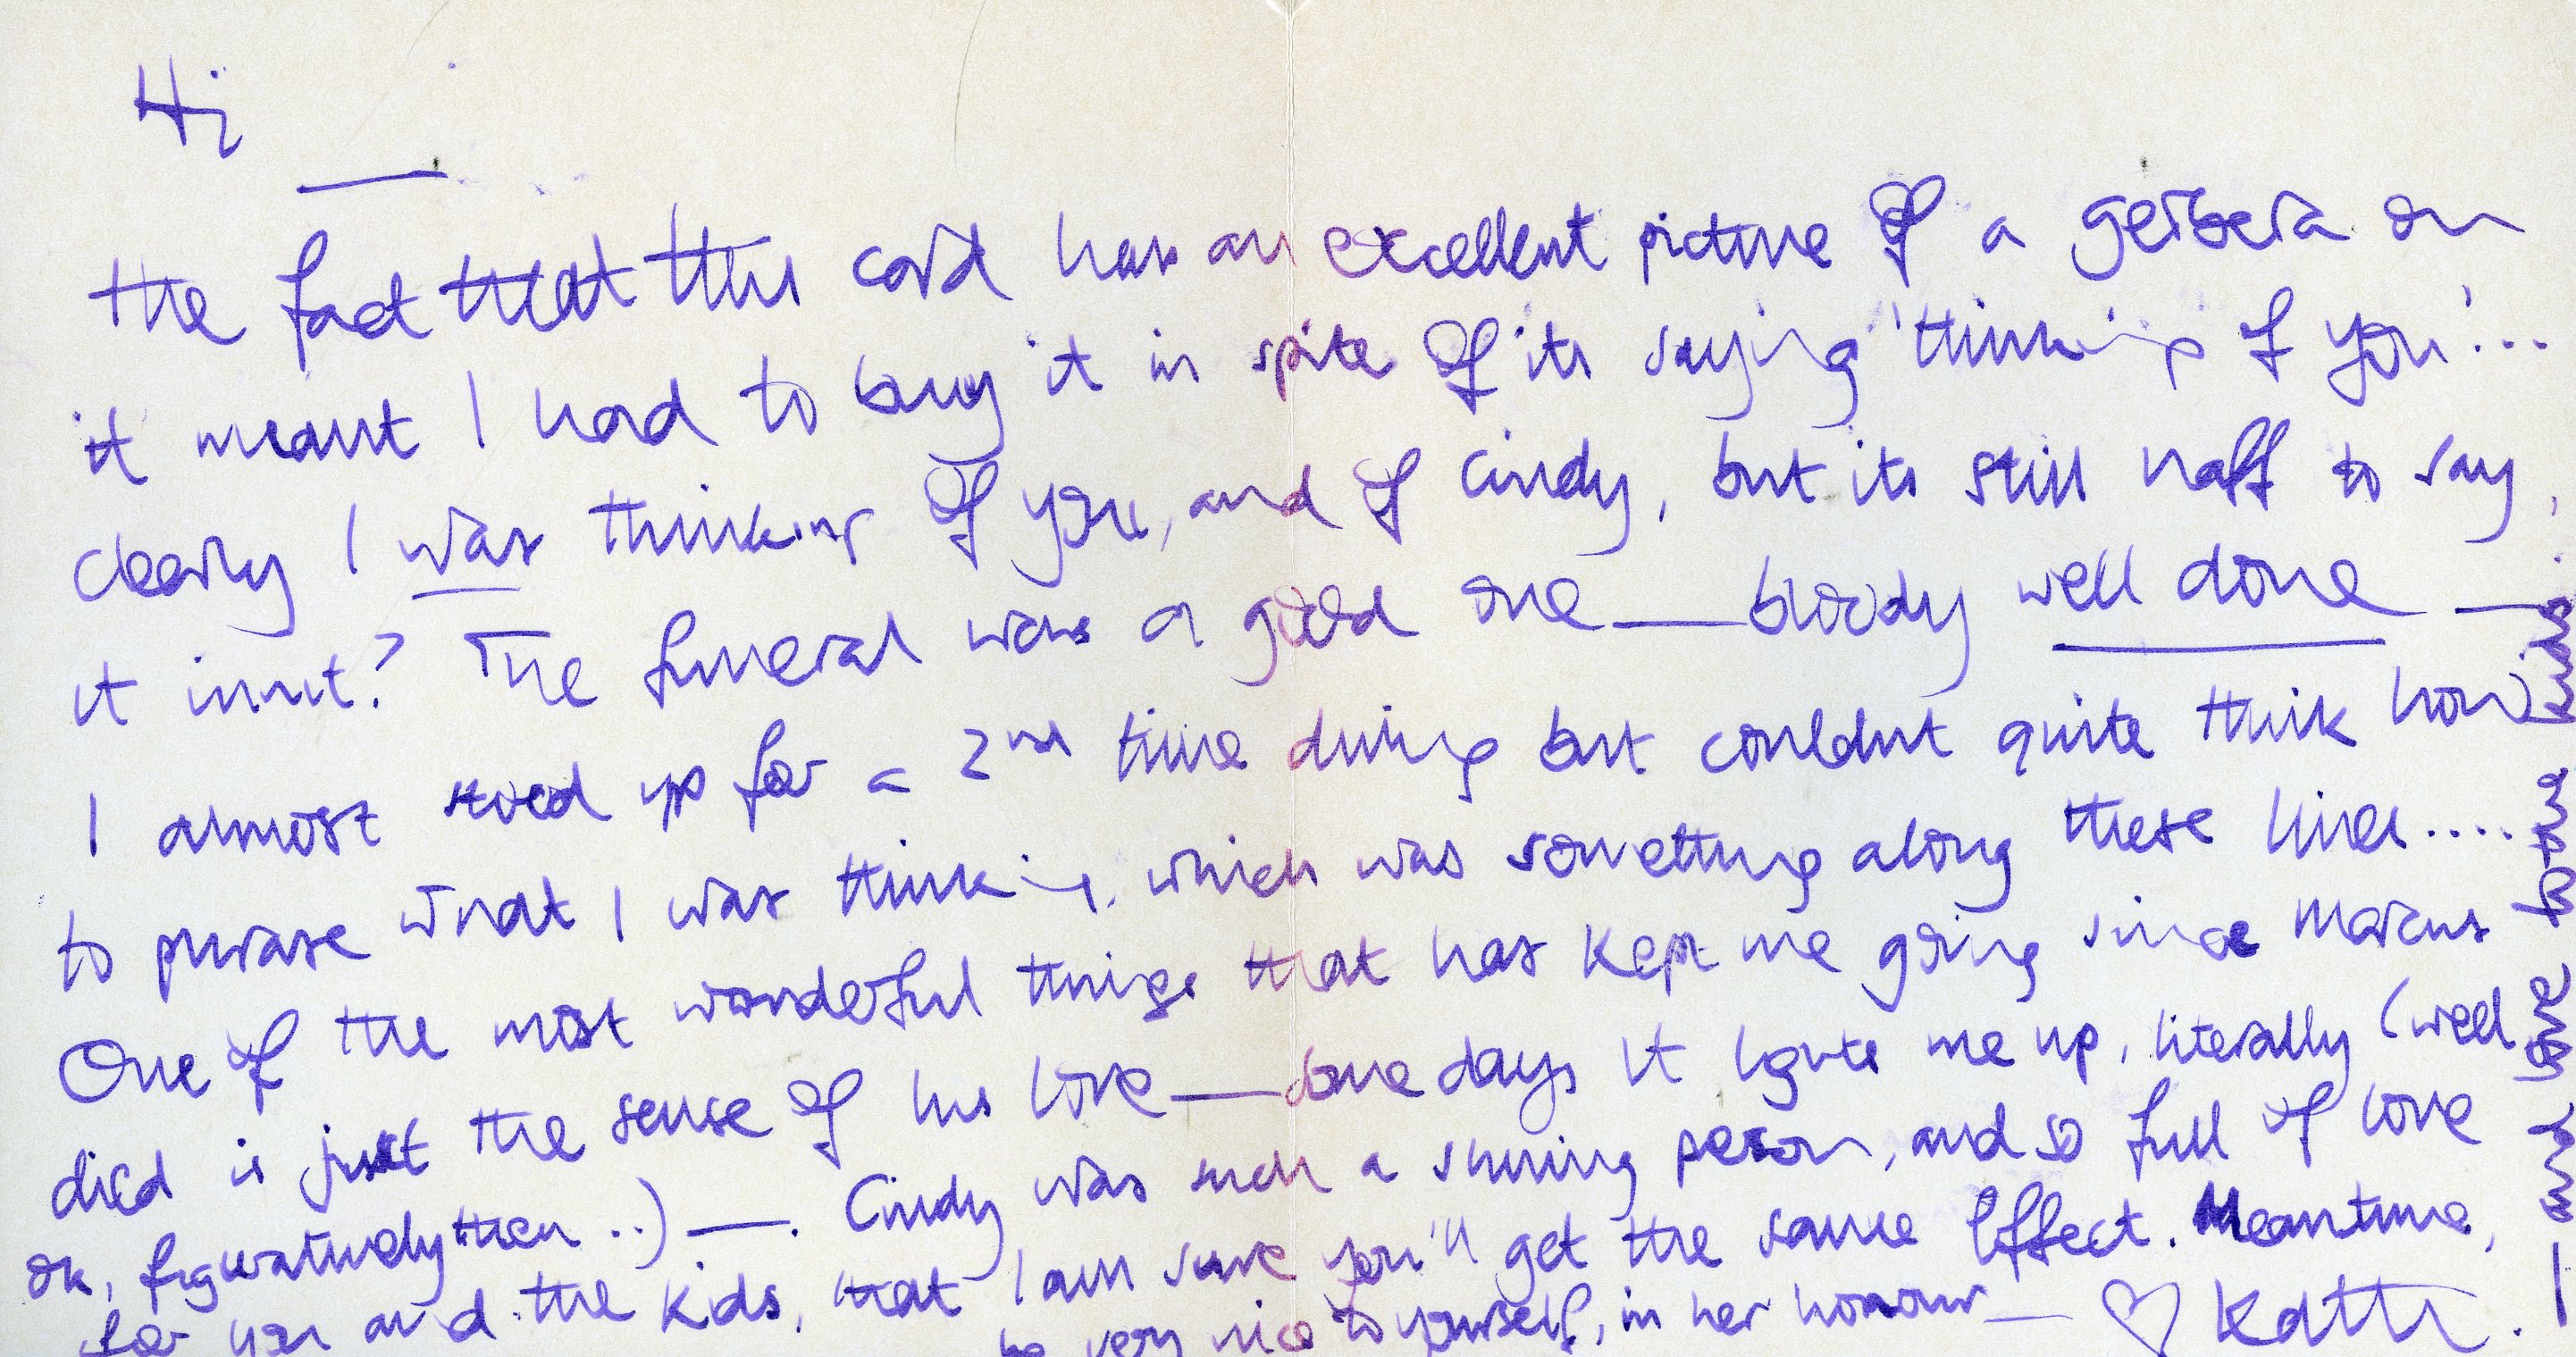 Hi ___
the fact that this card has an excellent picture of a gerbera on
it meant I had to buy it in spite of its saying 'thinking of you'...
clearly I was thinking of you, and of Cindy, but its still naff to say
it innit? The funeral was a good one — bloody well done —
I almost stood up for a 2nd time during but couldnt quite think how
to phrase what I was thinking, which was something along these lines....
One of the most wonderful things that has kept me going since Marcus
died is just the sense of his love — some days it lights me up, literally (well
ok, figuratively then..) —. Cindy was such a shining person, and so full of love
for you and the kids, that I am sure you'll get the same effect. Meantime,
be very nice to yourself, in her honour — ♡ Kath.